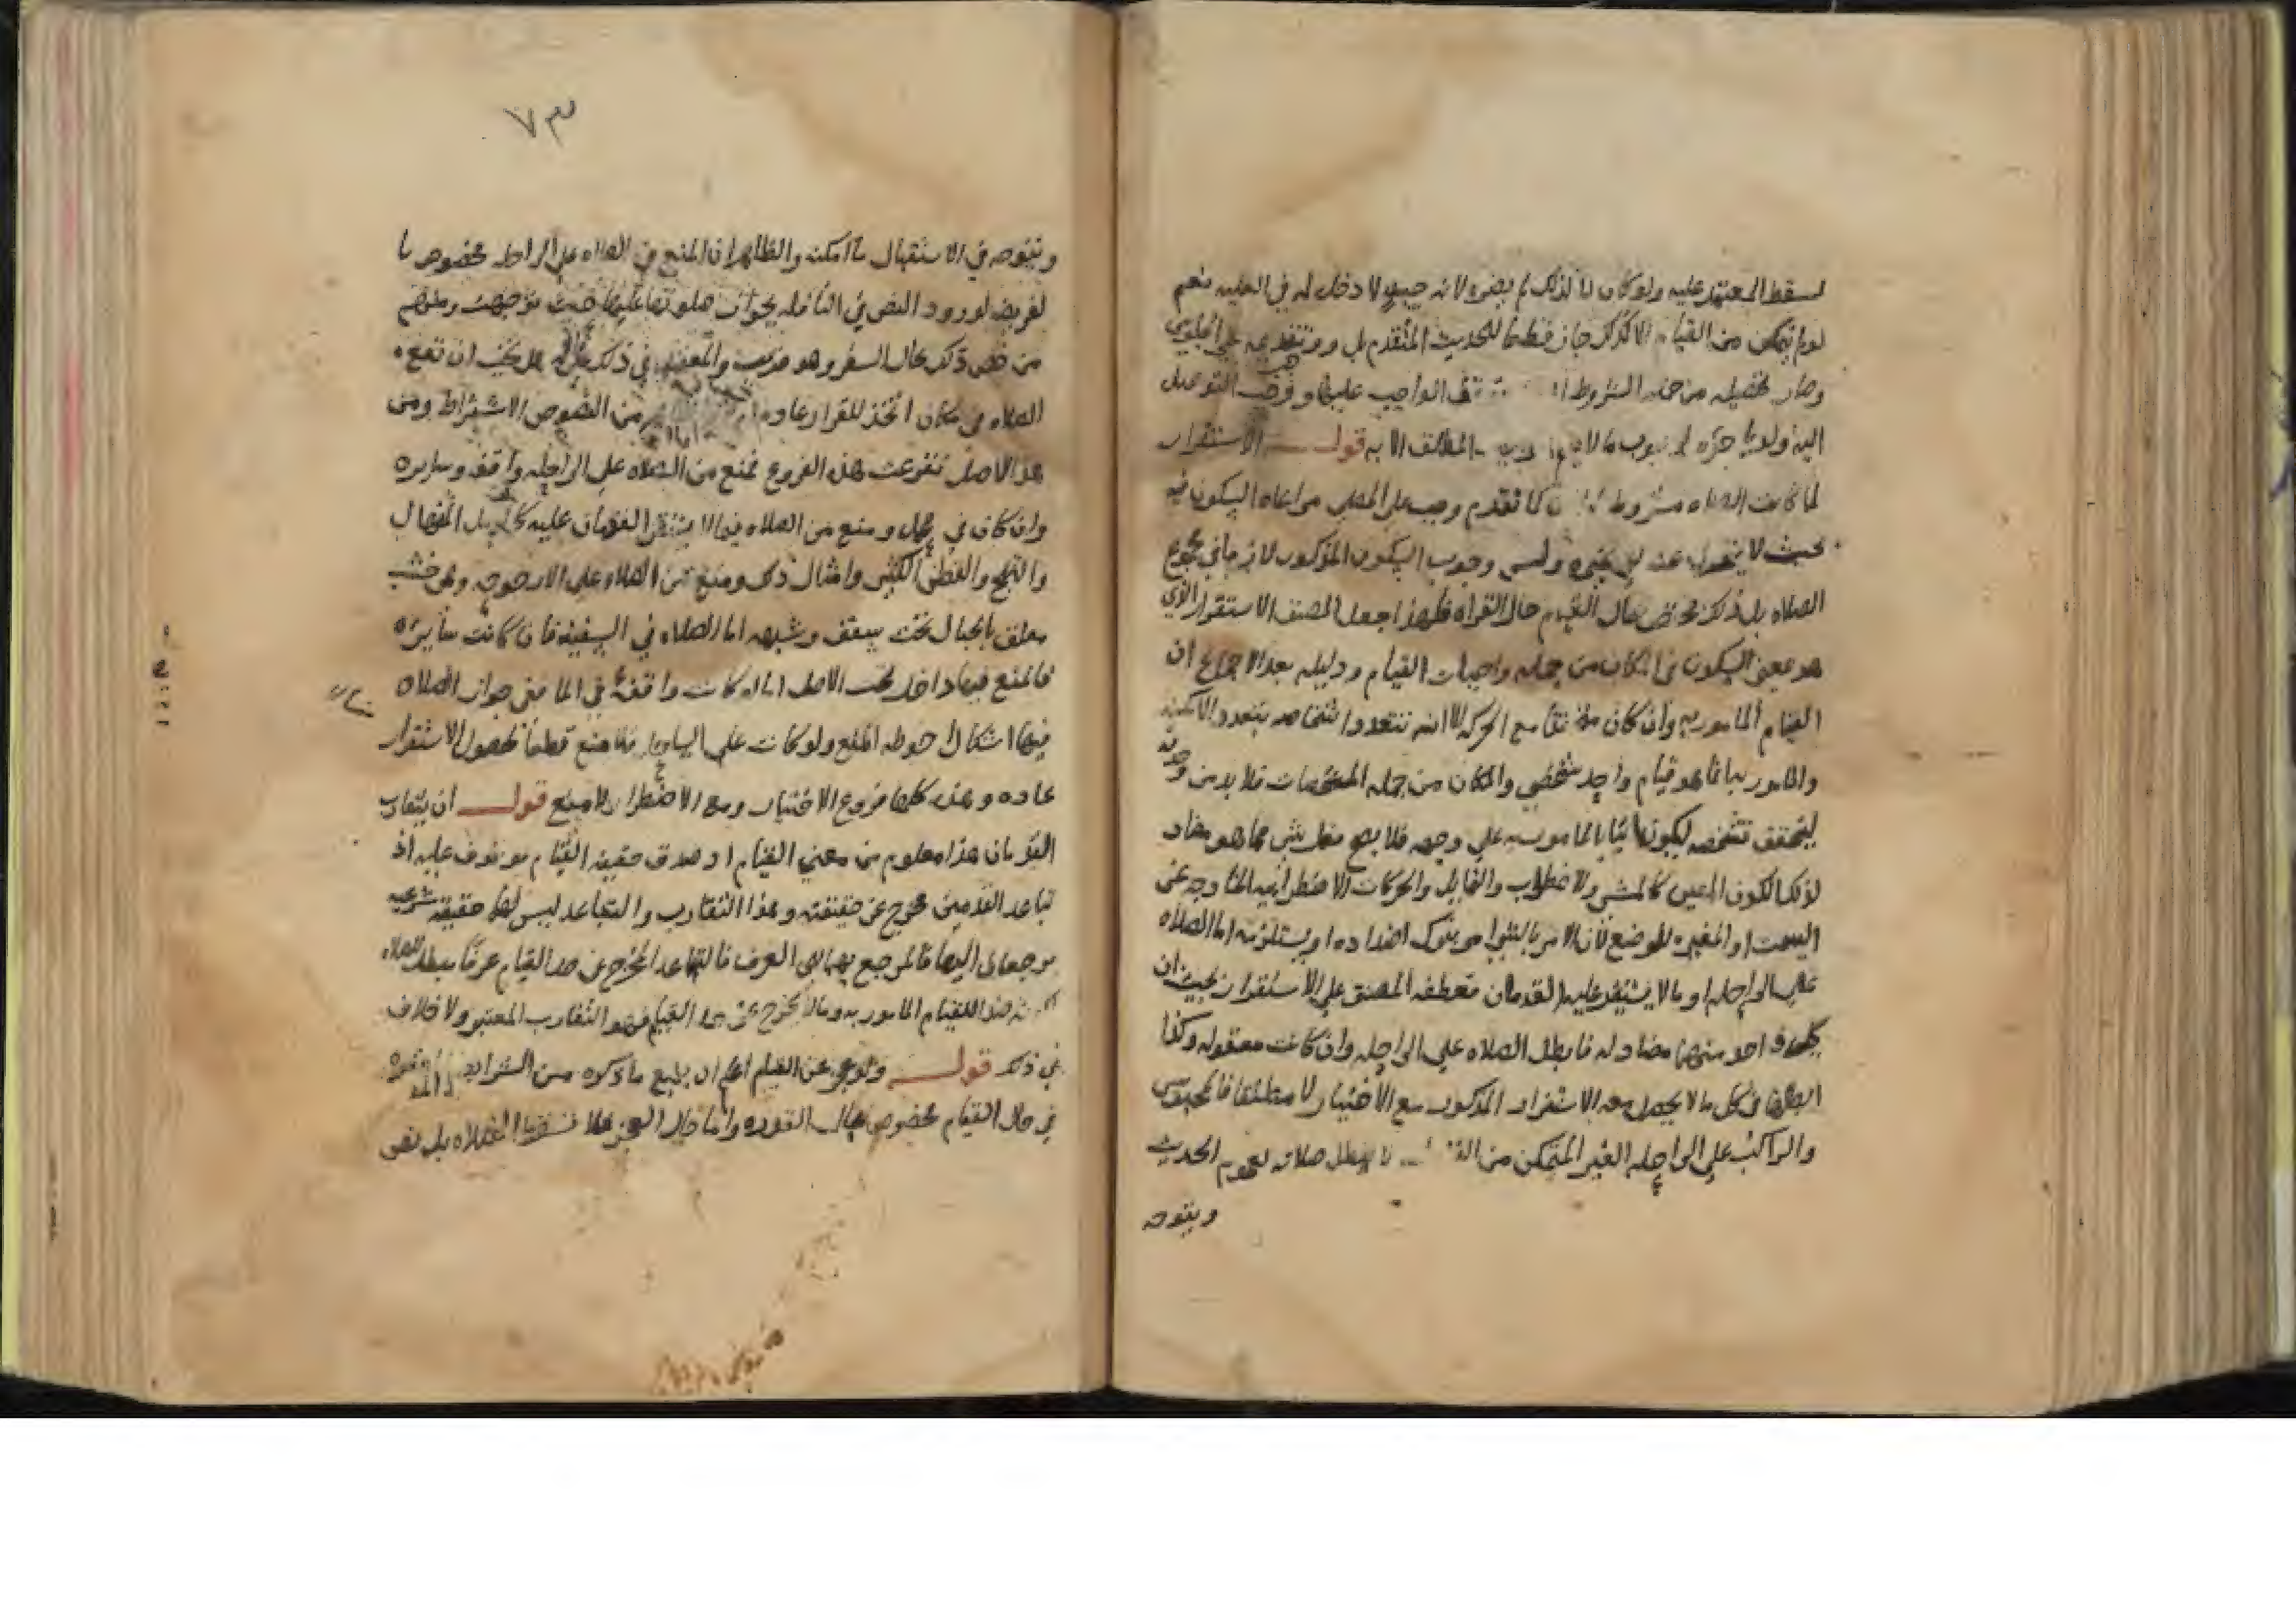 لسقط المعتمد عليه ولو كان لا لذلك لم يضره لانه حينئذ لا دخل له في العليه نعم
لو لم يتمكن من القيام الا كذلك جاز قطعا للحديث المتقدم بل
وصار تحصيله من جمله الشروط الواجب عليها وفوجب التوصل
اليه ولو باجره لوجوب ما لا الا به قولــه الاستقرار
لما كانت الصلاه مشروطه كما تقدم وجب على المصلي مراعاه السكون فيه
بحيث لا يتحول عنه الى غيره وليس وجوب السكون المذكور لازما في مجموع
الصلاه بل ذلك مختص بحال القيام حال القراه فلهذا جعل المصنف الاستقرار الذي
هو بمعنى السكون في المكان من جمله واجبات القيام ودليله بعد الاجماع ان
القيام المامور به وان كان مع الحركه الا انه تتعدد اشخاصه بتعدد الامكنه
والمامور به انما هو قيام واحد شخصي والمكان من جمله المشخصات فلا بد من وحدته
ليتحقق تشخصه ليكون اتيا بالمامور به على وجهه فلا يصح فعل شي مما هو مضاد
لذلك الكون المعين كالمشي والاضطراب والتمايل والحركات الاضطرابيه الخارجه عن
السمت او المغيره للموضع لان الامر بالشي امر بترك اضداده او يستلزمه اما الصلاه
على الراحله او ما لا يستقر عليه القدمان فعطفه المصنف على الاستقرار بحيث ان
كل واحد منهما مضاد له فابطل الصلاه على الراحله وان كانت معقوله وكذا
ابطلها في كل ما لا يحصل معه الاستقرار المذكور مع الاختيار لا مطلقا فالمحبوس
والراكب على الراحله الغير المتمكن من لا يبطل صلاته لعموم الحديث
ويتوجه
٧٣
ويتوجه في الاستقبال ما امكنه والظاهر ان المنع في الصلاه على الراحله مخصوص با
لفريضه لورود النص في النافله بجواز صلوتها عليها حيث توجهت ومنهم
من خص ذلك بحال السفر وهو قريب في ذلك يجب ان تقع
الصلاه في مكان اتخذ للقرار عاده من النصوص الاشتراط ومن
هذا الاصل تفرعت هذه الفروع فمنع من الصلاه على الراحله واقفه وسايره
وان كان في محمل ومنع من الصلاه فيما لا يستقر القدمان عليه كالرمل المنهال
والثلج والقطن الكثير وامثال ذلك ومنع من الصلاه على الارجوحه وهي خشب
معلق بالحبال تحت سقف وشبهه اما الصلاه في السفينه فان كانت سايره
فالمنع فيها داخل تحت الاصل اما لو كانت واقفه في الما ففي جواز الصلاه
فيها اشكال احوطه المنع ولو كانت على اليابس فلا منع قطعا لحصول الاستقرار
عاده وهذه كلها فروع الاختيار ومع الاضطرار لا منع قولــه ان يتقارب
القدمان هذا معلوم من معنى القيام اذ صدق حقيقه القيام موقوف عليه اذ
تباعد القدمين مخرج عن حقيقته وهذا التقارب والتباعد ليس لهما حقيقه شرعيه
يرجعان اليها فالمرجع بهما الى العرف فالتباعد المخرج عن حد القيام عرفا مبطل للصلاه
ضدا للقيام المامور به وما لا يخرج عن حد القيام فهو التقارب المعتبر ولا خلاف
في ذلك قولــه ولو عجز عن القيام اعلم ان جميع ما ذكره من الشرايط المعتبره
في حال القيام مخصوص بحال القدره واما حال العجز فلا تسقط الصلاه بل تصح